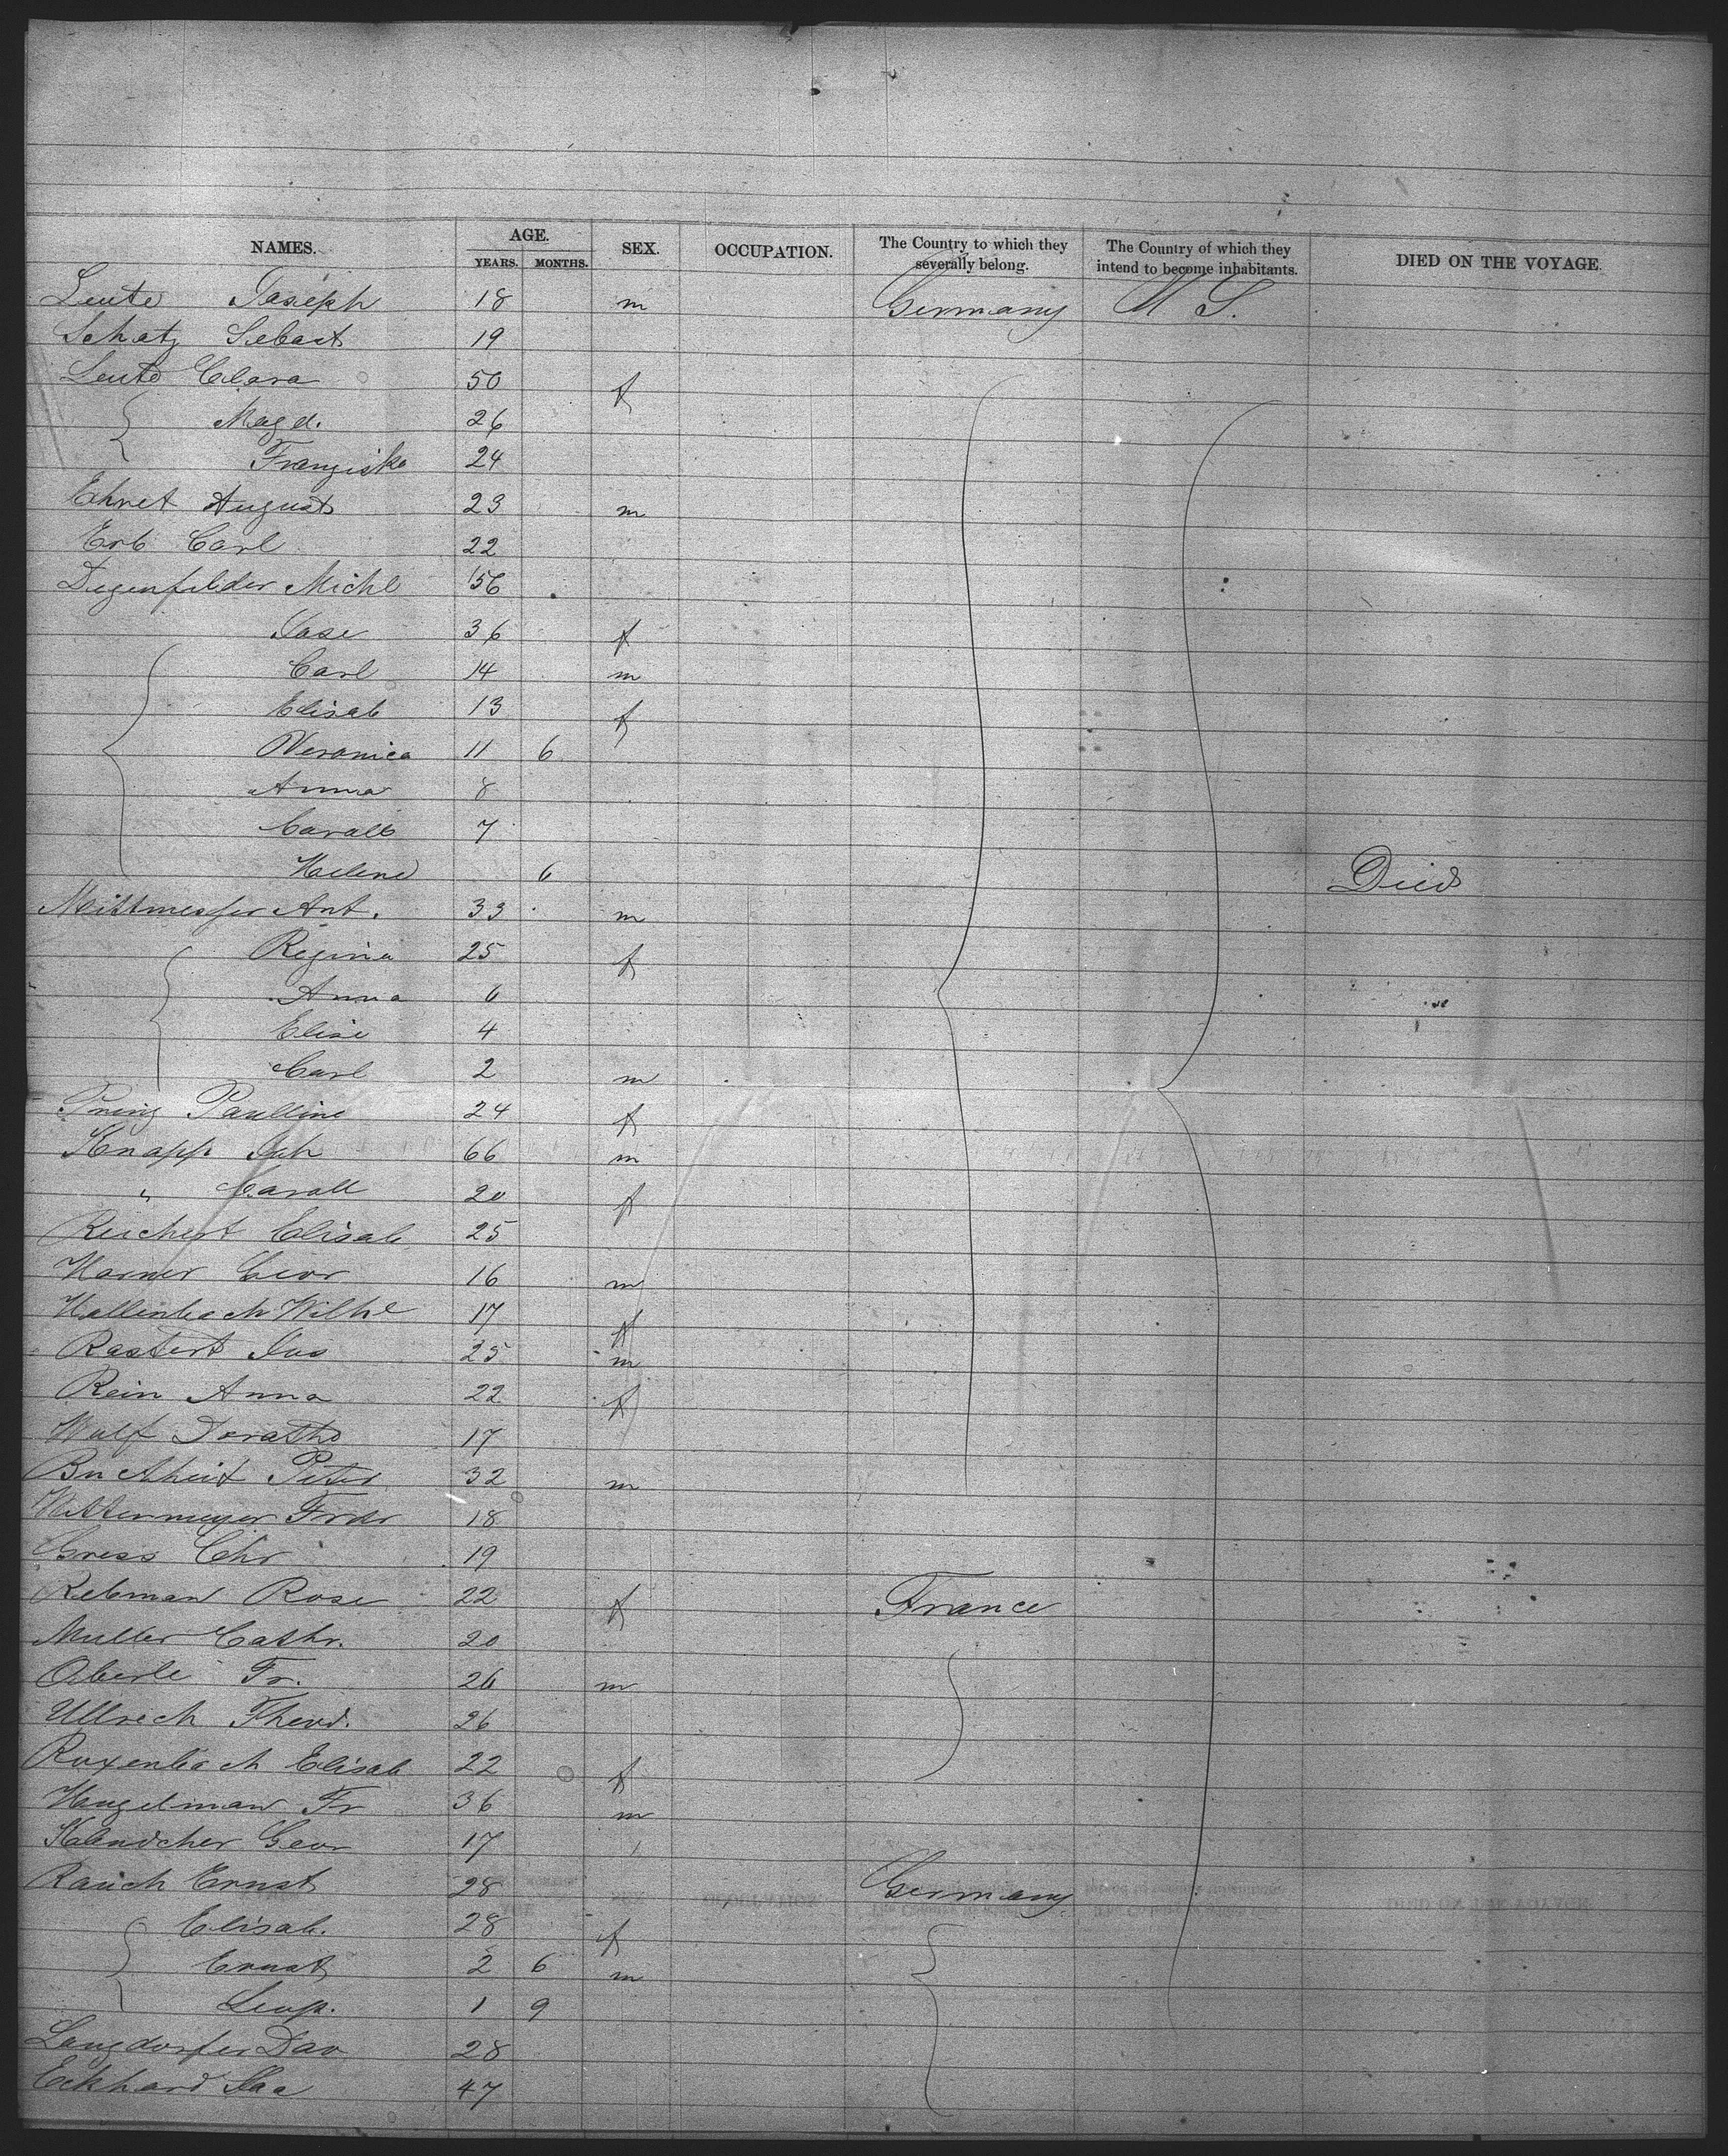 NAMES. AGE. YEARS. MONTHS. SEX. OCCUPATION. The Country to which they severally belong. The Country of which they intend to become inhabitants. DIED ON THE VOYAGE.
Leute Joseph 18 m Germany U S.
Schatz Sebast 19
Leute Clara 50 f
Magd. 26
Franziska 24
Ehret August 23 m
Erb Carl 22
Degenfelder Michl 56
Jose 36 f
Carl 14 m
Elisab 13 f
Veronica 11 6
Anna 8
Caroll 7
Helene 6 Died
Mittmesser Ant. 33 m
Regina 25 f
Anna 6
Elise 4
Carl 2 m
Paulline 24 f
Knapp Joh 66 m
" Caroll 20 f
Reichert Elisab 25
Horner Geor 16 m
Hallenbach Wilhl 17 f
Rastert Jos 25 m
Rein Anna 22 f
Wolf Doratho 17
Buchheit Peter 32 m
Wittermeyer Fredr 18
Gress Chr 19
Rebman Rose 22 f France
Muller Cathr. 20
Oberle Fr. 26 m
Ullrech Theod. 26
Roxenbach Elisab 22 f
Hugelman Fr 36 m
Geor 17
Rauch Ernst 28 Germany
Elisab. 28 f
Ernst 2 6 m
Leop. 1 9
Langdorfer Dav 28
Eckhard Isa 47